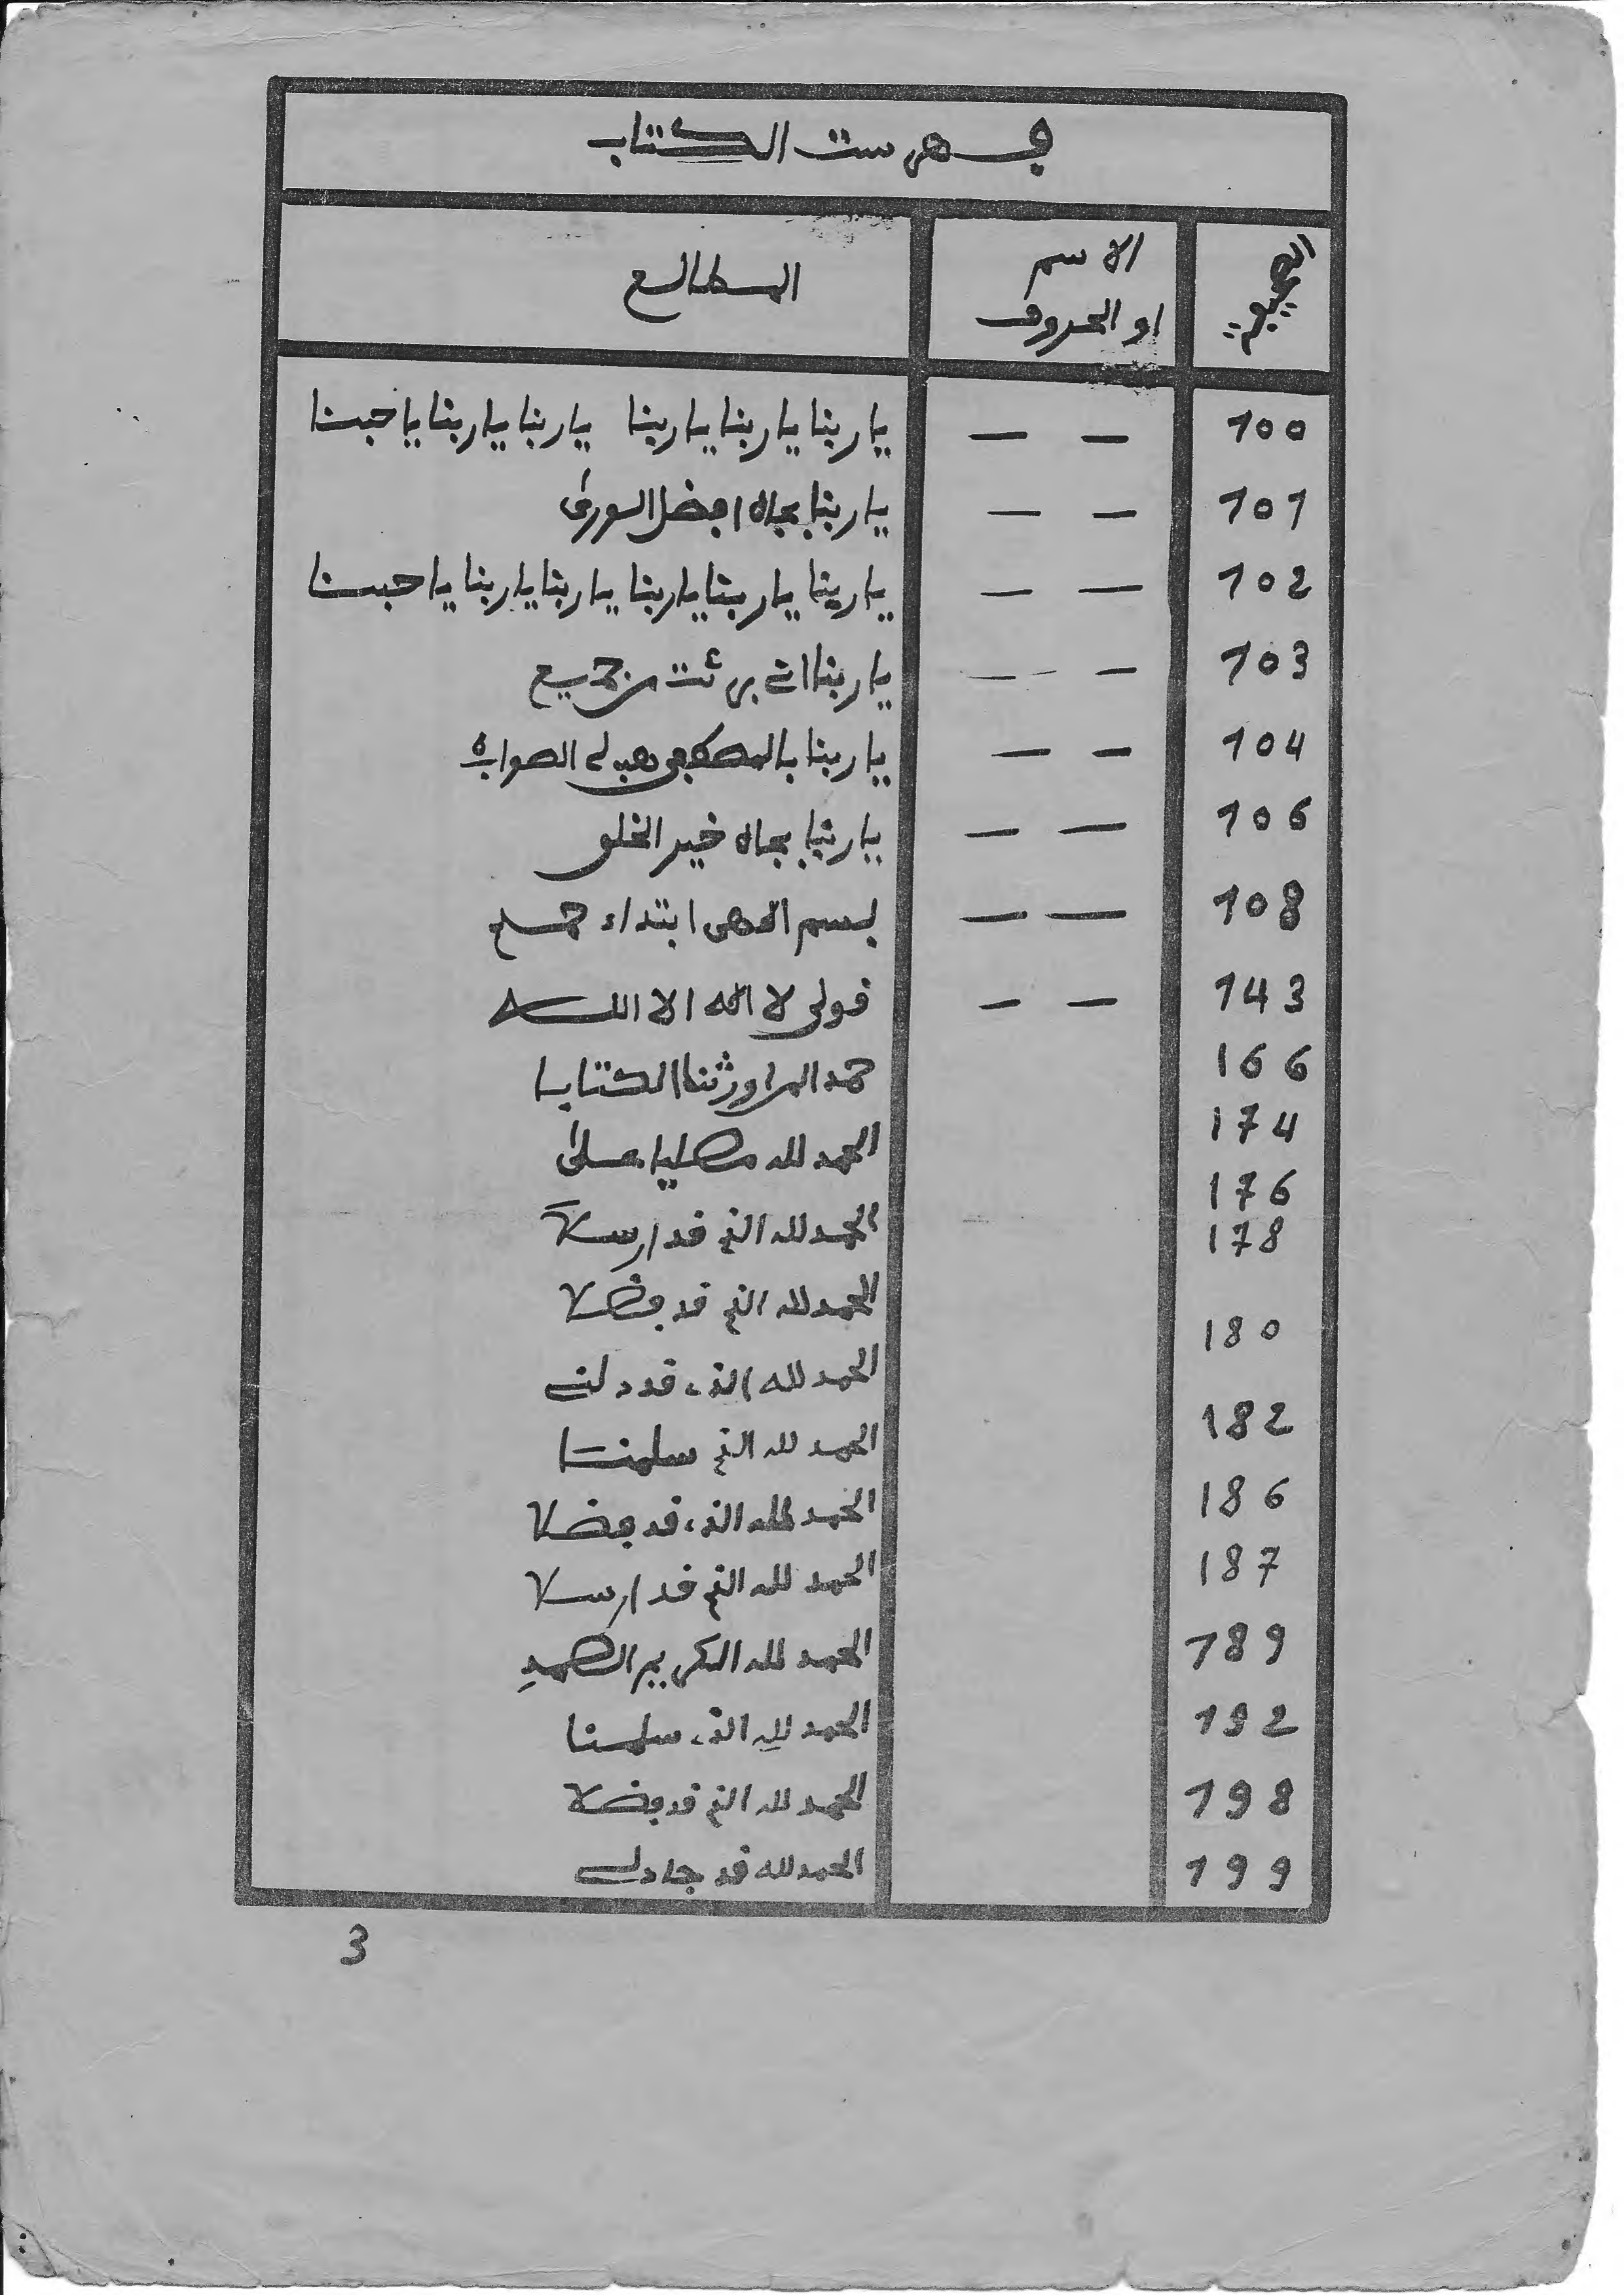 فهرست الكتاب
الصحيفة
الاسم
او الحروف
المطالع
100 — — يا ربنا يا ربنا يا ربنا يا ربنا يا ربنا يا حبنا
101 — — يا ربنا بجاه افضل الورى
102 — — يا ربنا يا ربنا يا ربنا يا ربنا يا ربنا يا حبنا
103 — — يا ربنا انى برئت من جميع
104 — — يا ربنا بالمصطفى هب لى الصواب
106 — — يا ربنا بجاه خير الخلق
108 — — بسم الٰهى ابتداء
143 — — قولى لا اله الا الله
166 حمدا لمن اورثنا الكتابا
174 الحمد لله مصليا على
176 الحمد لله الذى قد ارسلا
178 الحمد لله الذى قد فضلا
180 الحمد لله الذى قد دلنى
182 الحمد لله الذى سلمنا
186 الحمد لله الذى قد فضلا
187 الحمد لله الذى قد ارسلا
189 الحمد لله الكريم الصمد
192 الحمد لله الذى سلمنا
198 الحمد لله الذى قد فضلا
199 الحمد لله قد جاد لى
3